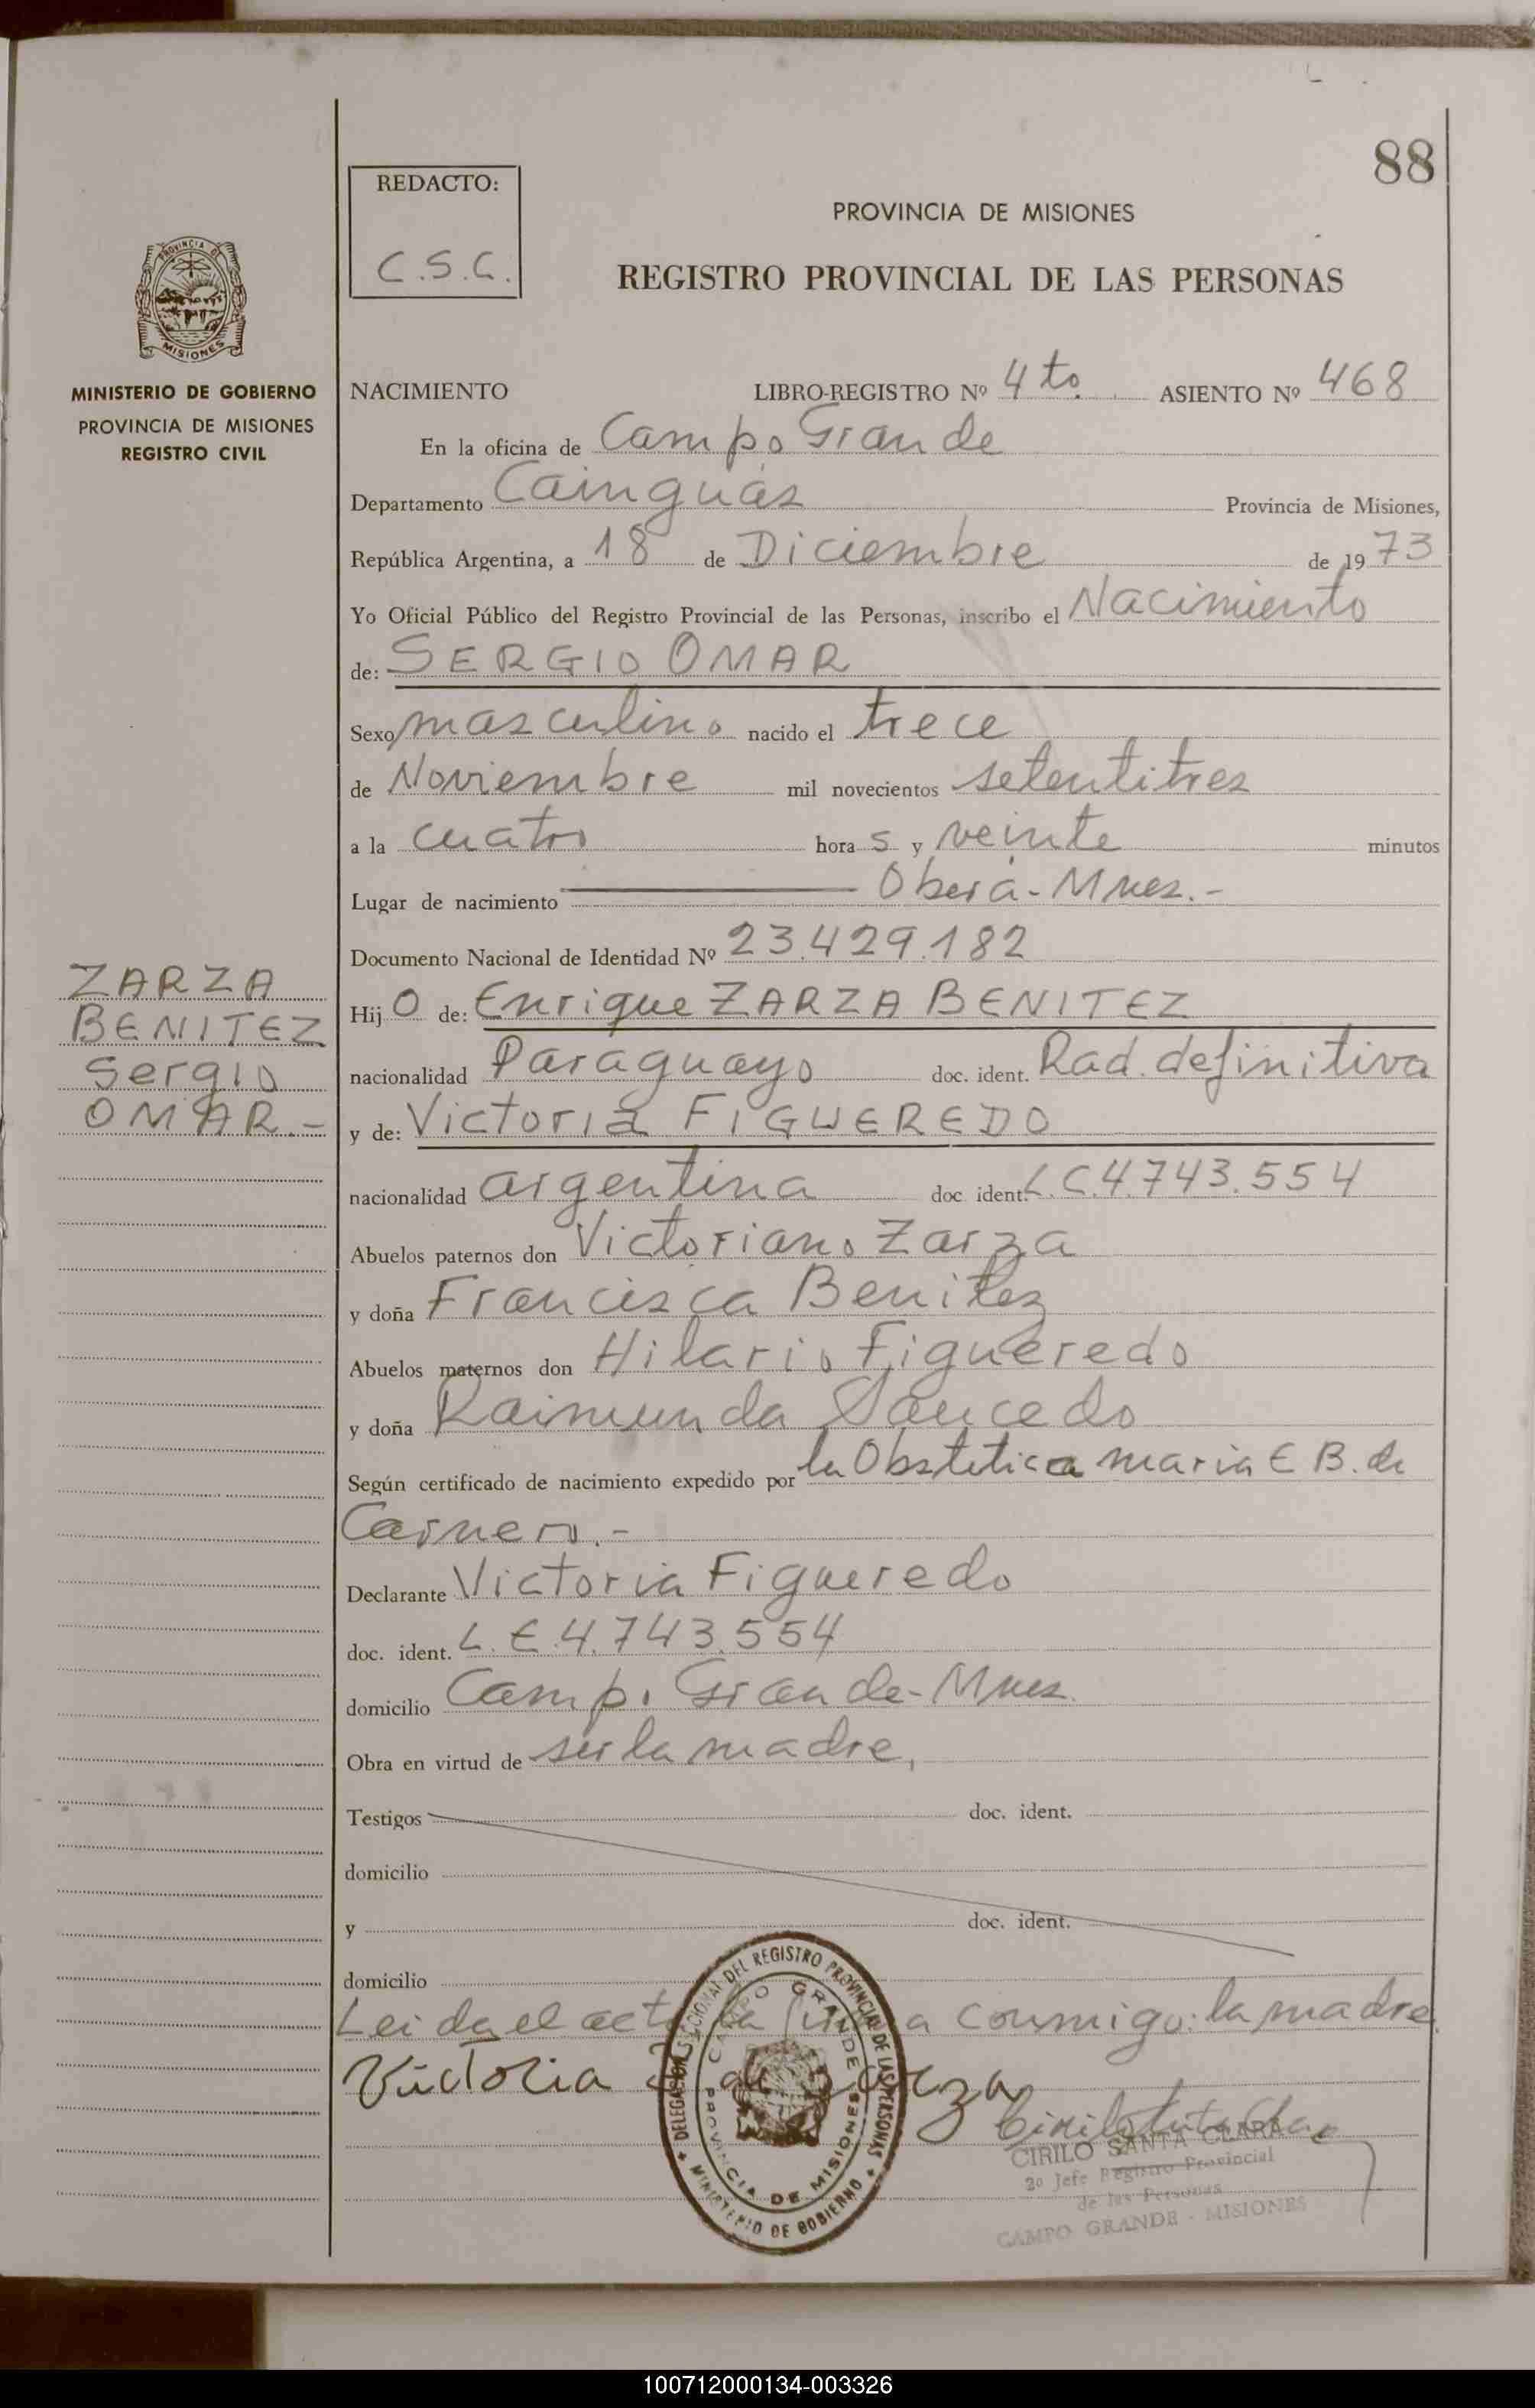 88
REDACTO:
C.S.C.
PROVINCIA DE MISIONES
REGISTRO PROVINCIAL DE LAS PERSONAS
PROVINCIA DE
MISIONES
MINISTERIO DE GOBIERNO
PROVINCIA DE MISIONES
REGISTRO CIVIL
NACIMIENTO LIBRO-REGISTRO Nº 4to. ASIENTO Nº 468
En la oficina de Campo Grande
Departamento Cainguás Provincia de Misiones,
República Argentina, a 18 de Diciembre de 1973
Yo Oficial Público del Registro Provincial de las Personas, inscribo el Nacimiento
de: SERGIO OMAR
Sexo masculino nacido el trece
de Noviembre mil novecientos setentitres
a la cuatro hora s y veinte minutos
Lugar de nacimiento Oberá - Mnes.-
Documento Nacional de Identidad Nº 23.429.182
ZARZA
BENITEZ
Sergio
OMAR.-
Hij o de: Enrique ZARZA BENITEZ
nacionalidad Paraguayo doc. ident. Rad. definitiva
y de: Victoria FIGUEREDO
nacionalidad argentina doc ident. L.C.4.743.554
Abuelos paternos don Victoriano Zarza
y doña Francisca Benitez
Abuelos maternos don Hilario Figueredo
y doña Raimunda Saucedo
Según certificado de nacimiento expedido por la Obstetica maria E B. de
Carnero.-
Declarante Victoria Figueredo
doc. ident. L.C.4.743.554
domicilio Campo Grande - Mnes.
Obra en virtud de ser la madre,
Testigos doc. ident.
domicilio
y doc. ident.
domicilio
Leida el acta la firma conmigo: la madre.
Victoria de Zarza
DELEGACION SECCIONAL DEL REGISTRO PROVINCIAL DE LAS PERSONAS
MINISTERIO DE GOBIERNO
CAMPO GRANDE
PROVINCIA DE MISIONES
CIRILO SANTA CLARA
2º Jefe Registro Provincial
de las Personas
CAMPO GRANDE - MISIONES
100712000134-003326